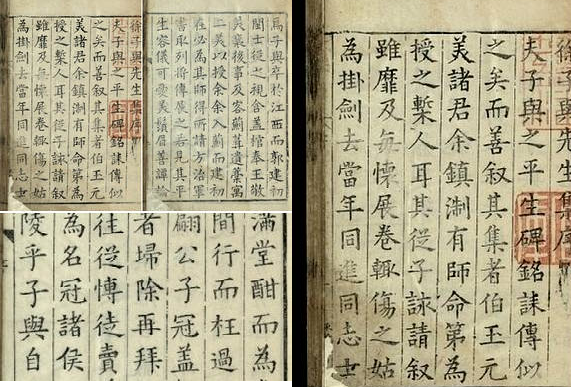 爲子與卒於江西而郭建初
閩士從之視含蓋棺奉王敬
美襄後事及客薊葺遺藁寓
二美以授余余入薊而建初
在必爲其師得所請方治軍
書取列將傳展之若見其平
生容儀可愛美鬚眉善譚論
徐子與先生集序
夫子與之平生碑銘誄傳似
之矣而善叙其集者伯王元
美諸君余鎮淛有師命第為
授之槧人耳其從子諫請叙
雖靡及每懷展卷輙傷之姑
為掛劍去當年同進同志士
滿堂酣而為
間行而枉過
翩公子冠蓋
者埽除再拜
往從慱徒賣
為名冠諸侯
陵乎子與自
徐子與先生集序
夫子與之平生碑銘誄傳似
之矣而善叙其集者伯王元
美諸君余鎮淛有師命第為
授之槧人耳其從子諫請叙
雖靡及每懷展卷輙傷之姑
為掛劍去當年同進同志士